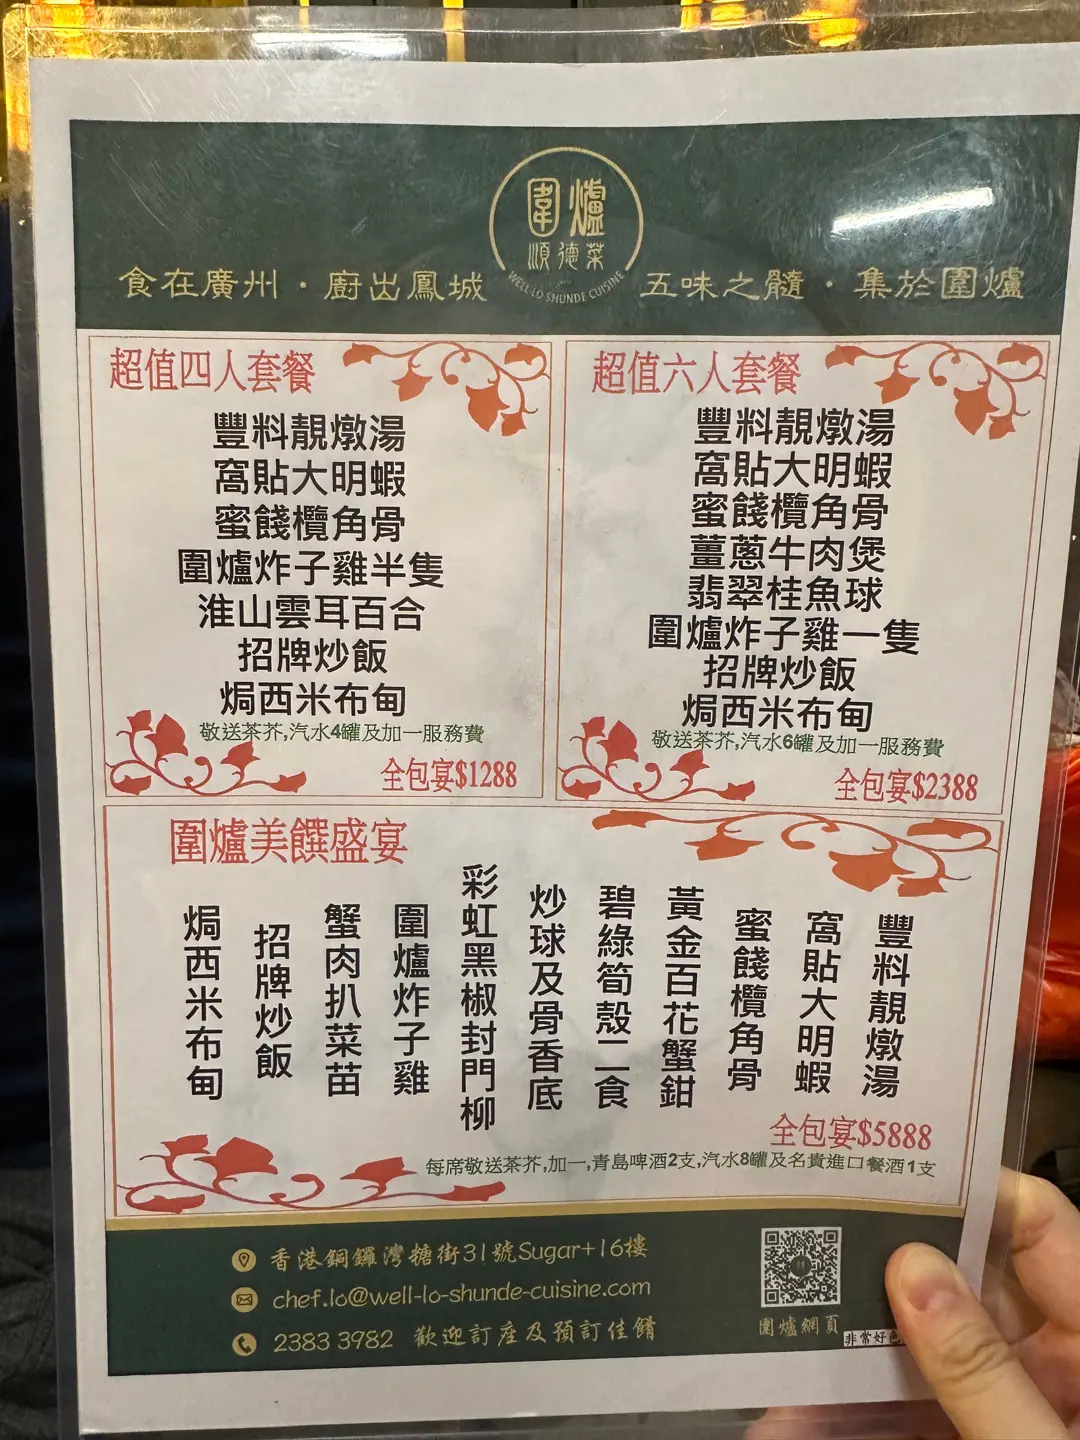 圍爐
順德菜
WELL-LO SHUNDE CUISINE
食在廣州·廚出鳳城
五味之髓·集於圍爐
超值四人套餐
豐料靚燉湯
窩貼大明蝦
蜜餞欖角骨
圍爐炸子雞半隻
淮山雲耳百合
招牌炒飯
焗西米布甸
敬送茶芥,汽水4罐及加一服務費
全包宴$1288
超值六人套餐
豐料靚燉湯
窩貼大明蝦
蜜餞欖角骨
薑蔥牛肉煲
翡翠桂魚球
圍爐炸子雞一隻
招牌炒飯
焗西米布甸
敬送茶芥,汽水6罐及加一服務費
全包宴$2388
圍爐美饌盛宴
豐料靚燉湯
窩貼大明蝦
蜜餞欖角骨
黃金百花蟹鉗
碧綠筍殼二食
炒球及骨香底
彩虹黑椒封門柳
圍爐炸子雞
蟹肉扒菜苗
招牌炒飯
焗西米布甸
全包宴$5888
每席敬送茶芥,加一,青島啤酒2支,汽水8罐及名貴進口餐酒1支
香港銅鑼灣糖街31號Sugar+16樓
chef.lo@well-lo-shunde-cuisine.com
2383 3982 歡迎訂座及預訂佳餚
圍爐網頁
非常好